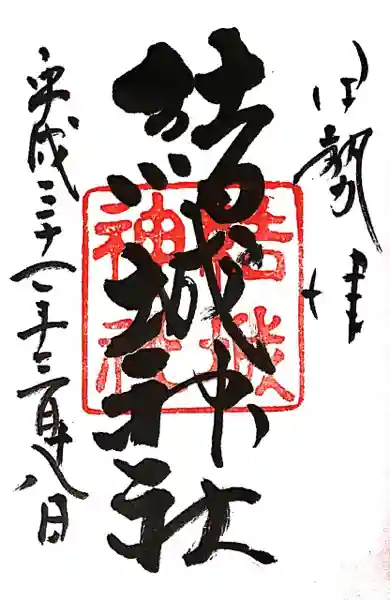 伊勢 津
結城神社
結城
神社
平成三十一年三月十八日